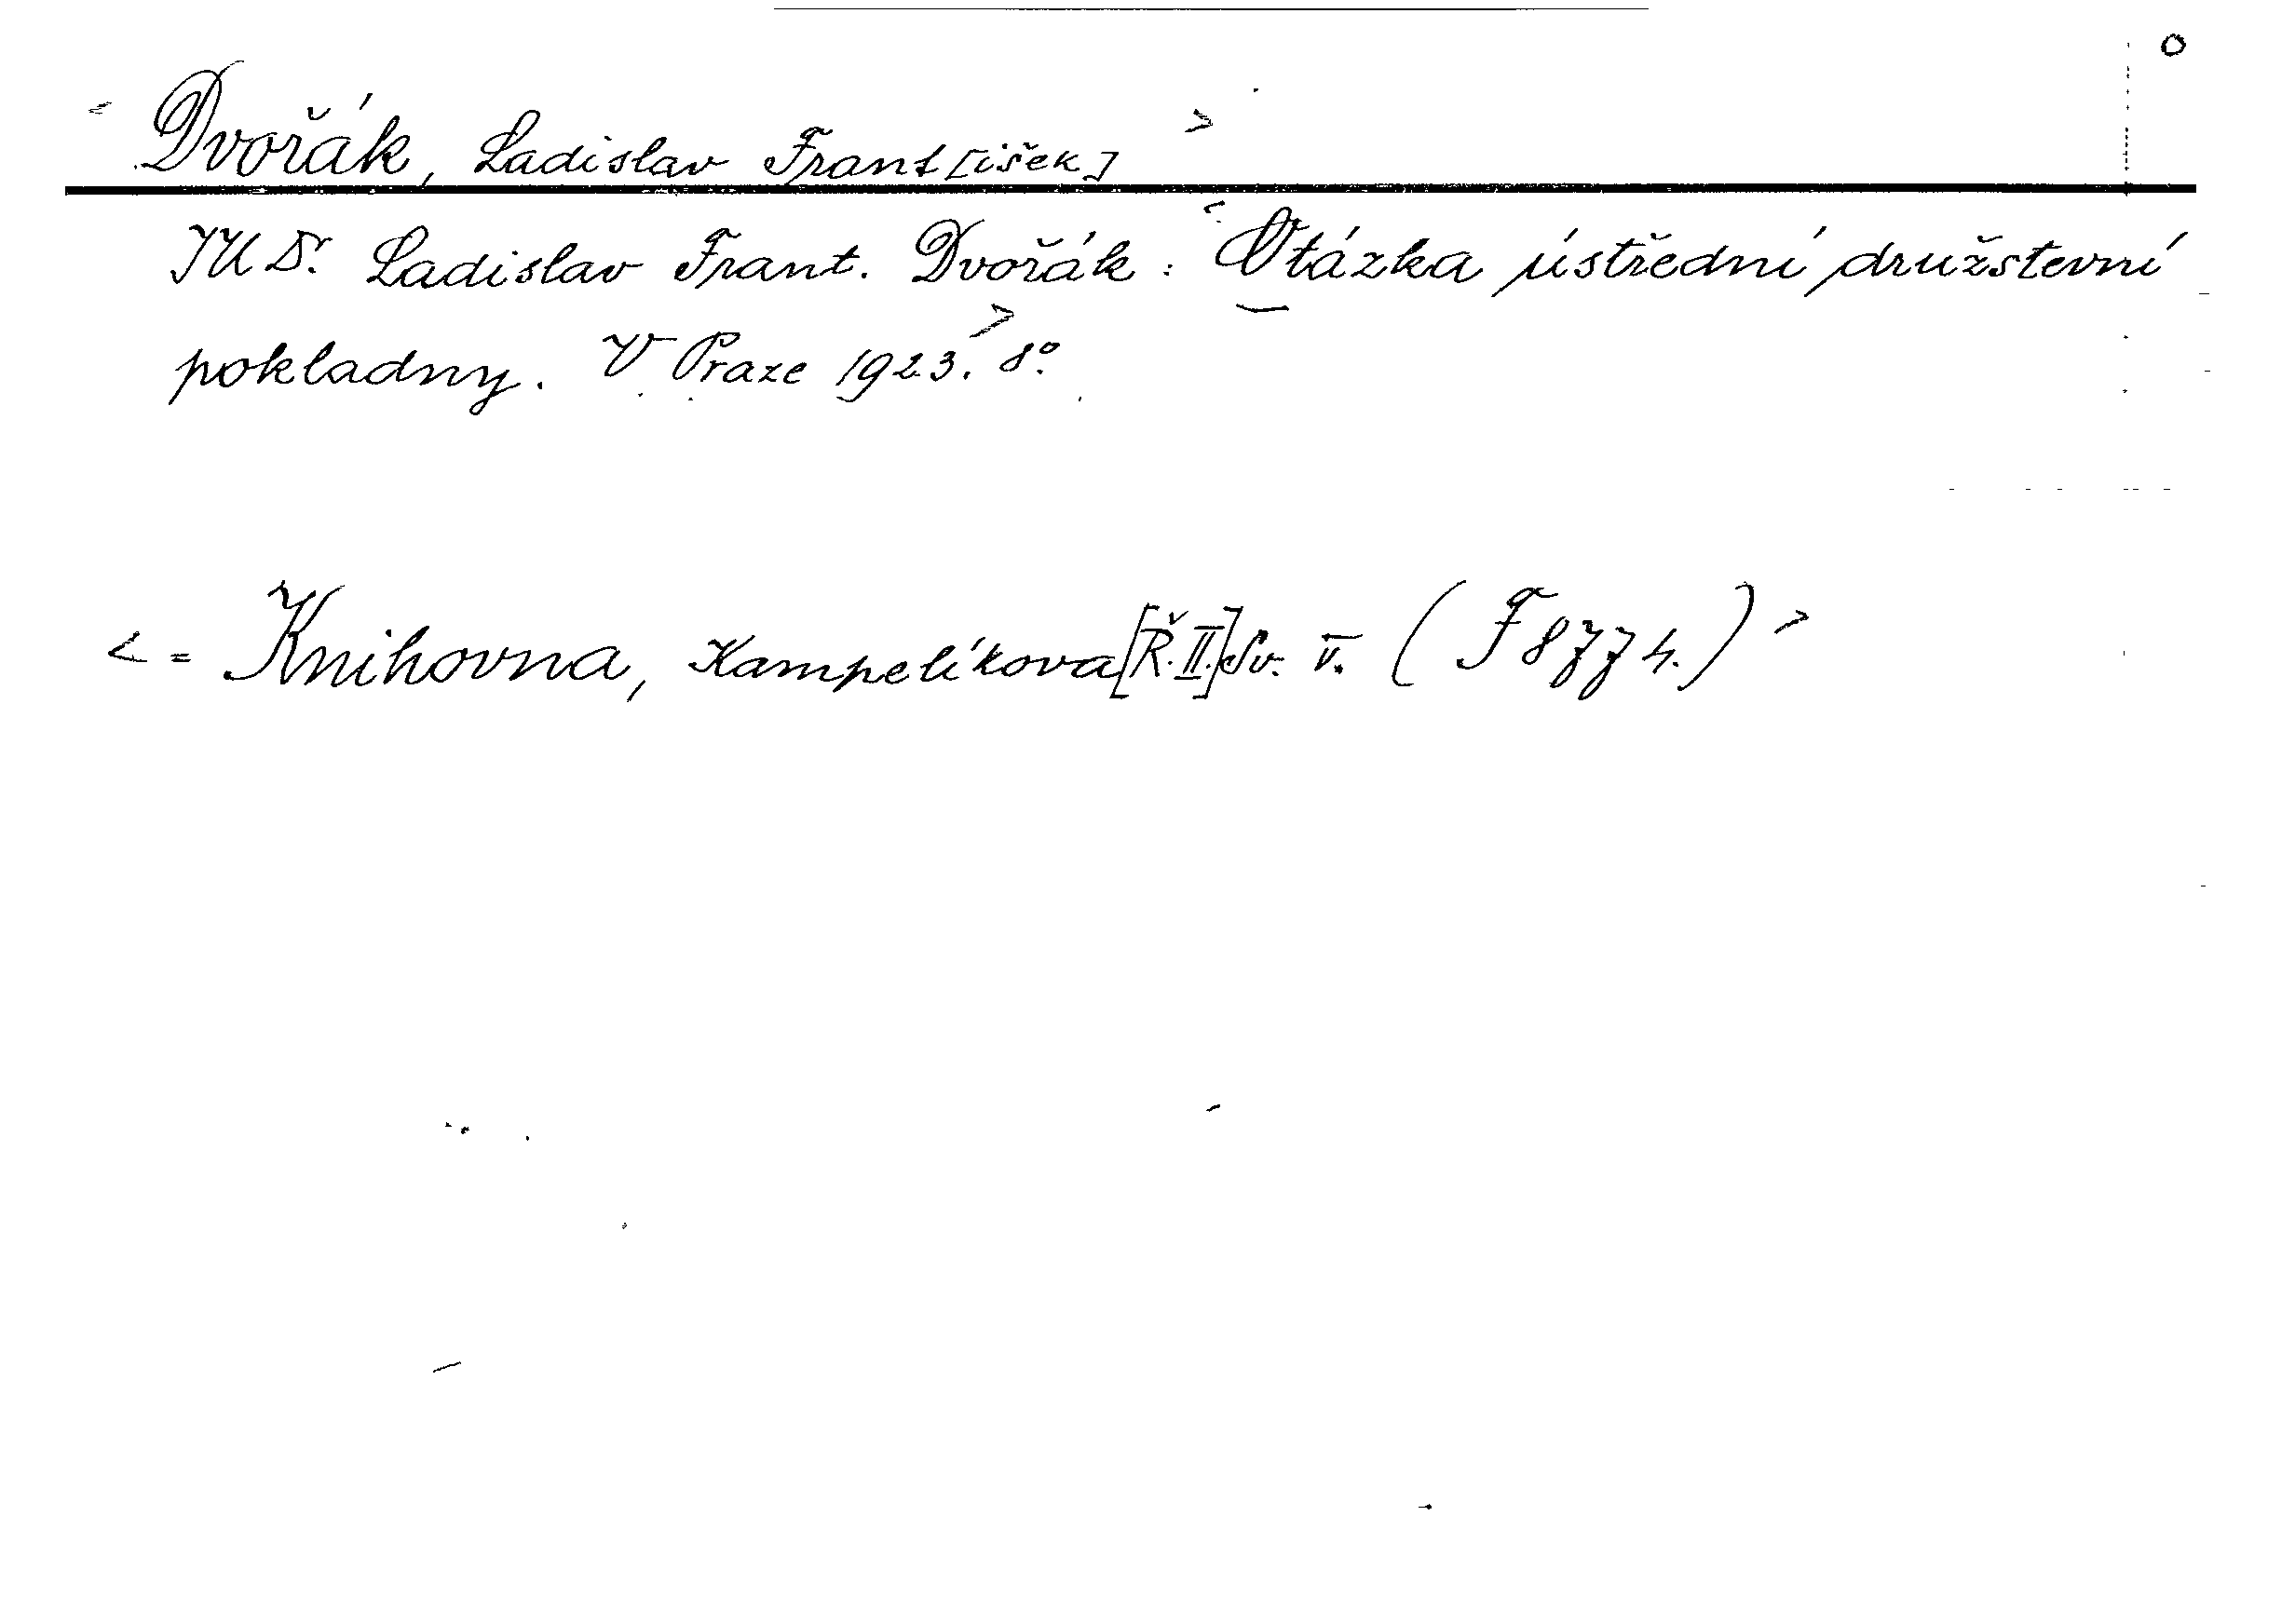 < Dvořák, Ladislav Frant[išek] >
JUDr. Ladislav Frant. Dvořák: <Otázka ústřední družstevní
pokladny. V Praze 1923.> 8°.
< = Knihovna, Kampelíkova [Ř. II.] Sv. V. (F 8774.) >